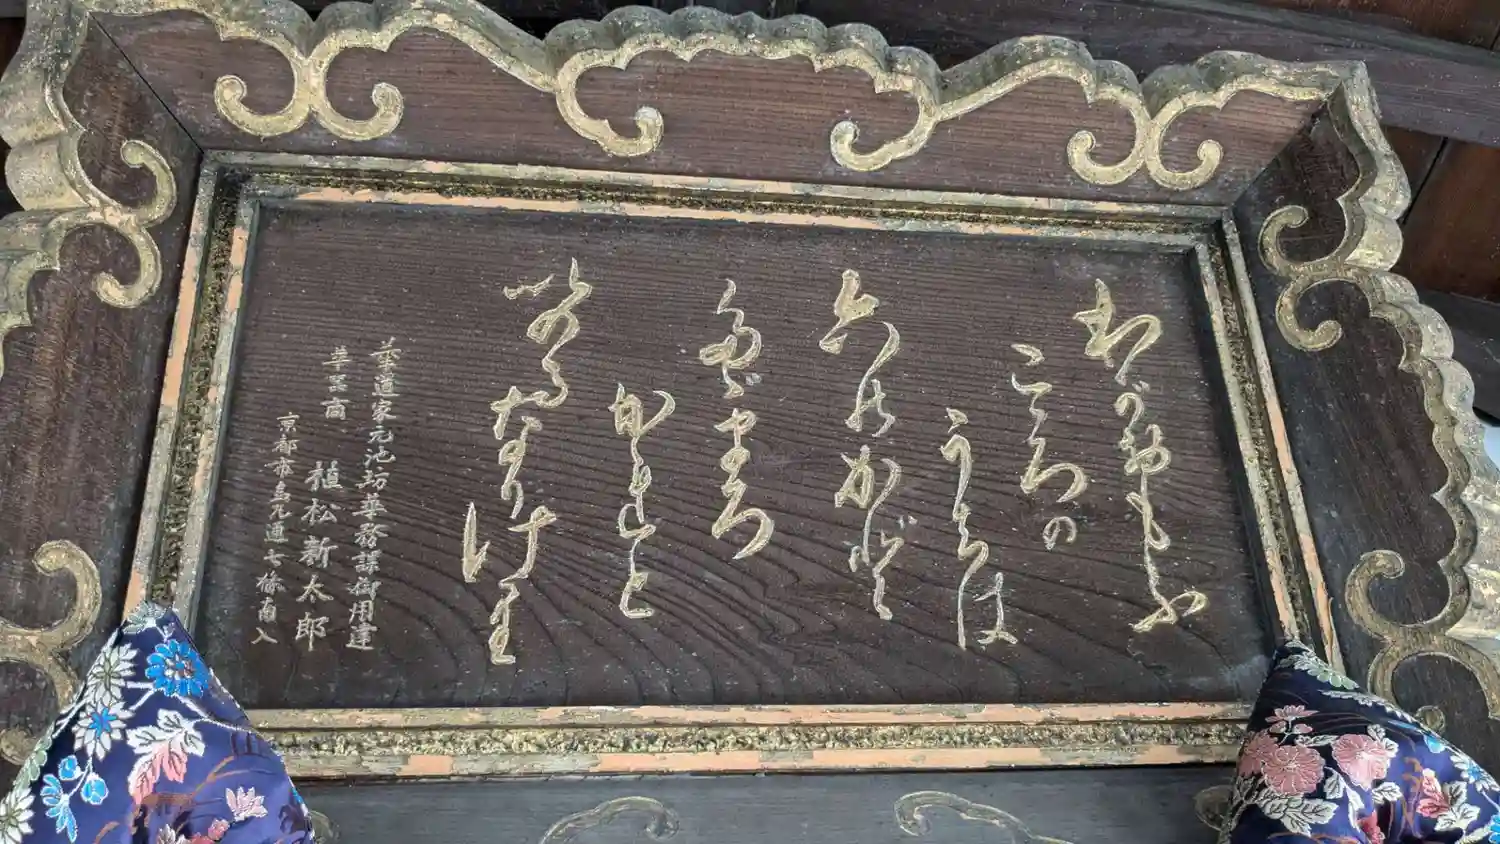 わがおもふ
こゝろの
うちは
六のかど
たゞまろ
かれと
いのるなりけり
華道家元池坊華務課御用達
華器商
植松新太郎
京都市烏丸通七條南入